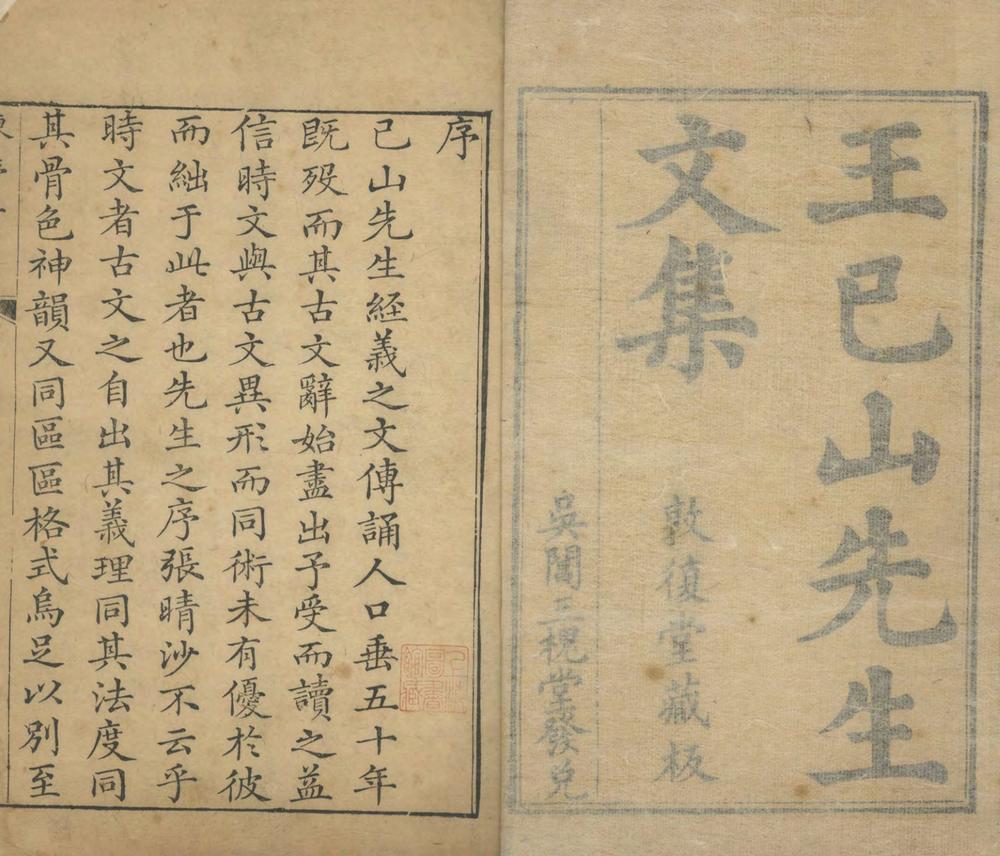 王巳山先生
文集
敦復堂藏板
吳閶三槐堂發兌
序
巳山先生經義之文傳誦人口垂五十年
既歿而其古文辭始盡出予受而讀之益
信時文與古文異形而同術未有優於彼
而絀于此者也先生之序張晴沙不云乎
時文者古文之自出其義理同其法度同
其骨色神韻又同區區格式烏足以別至